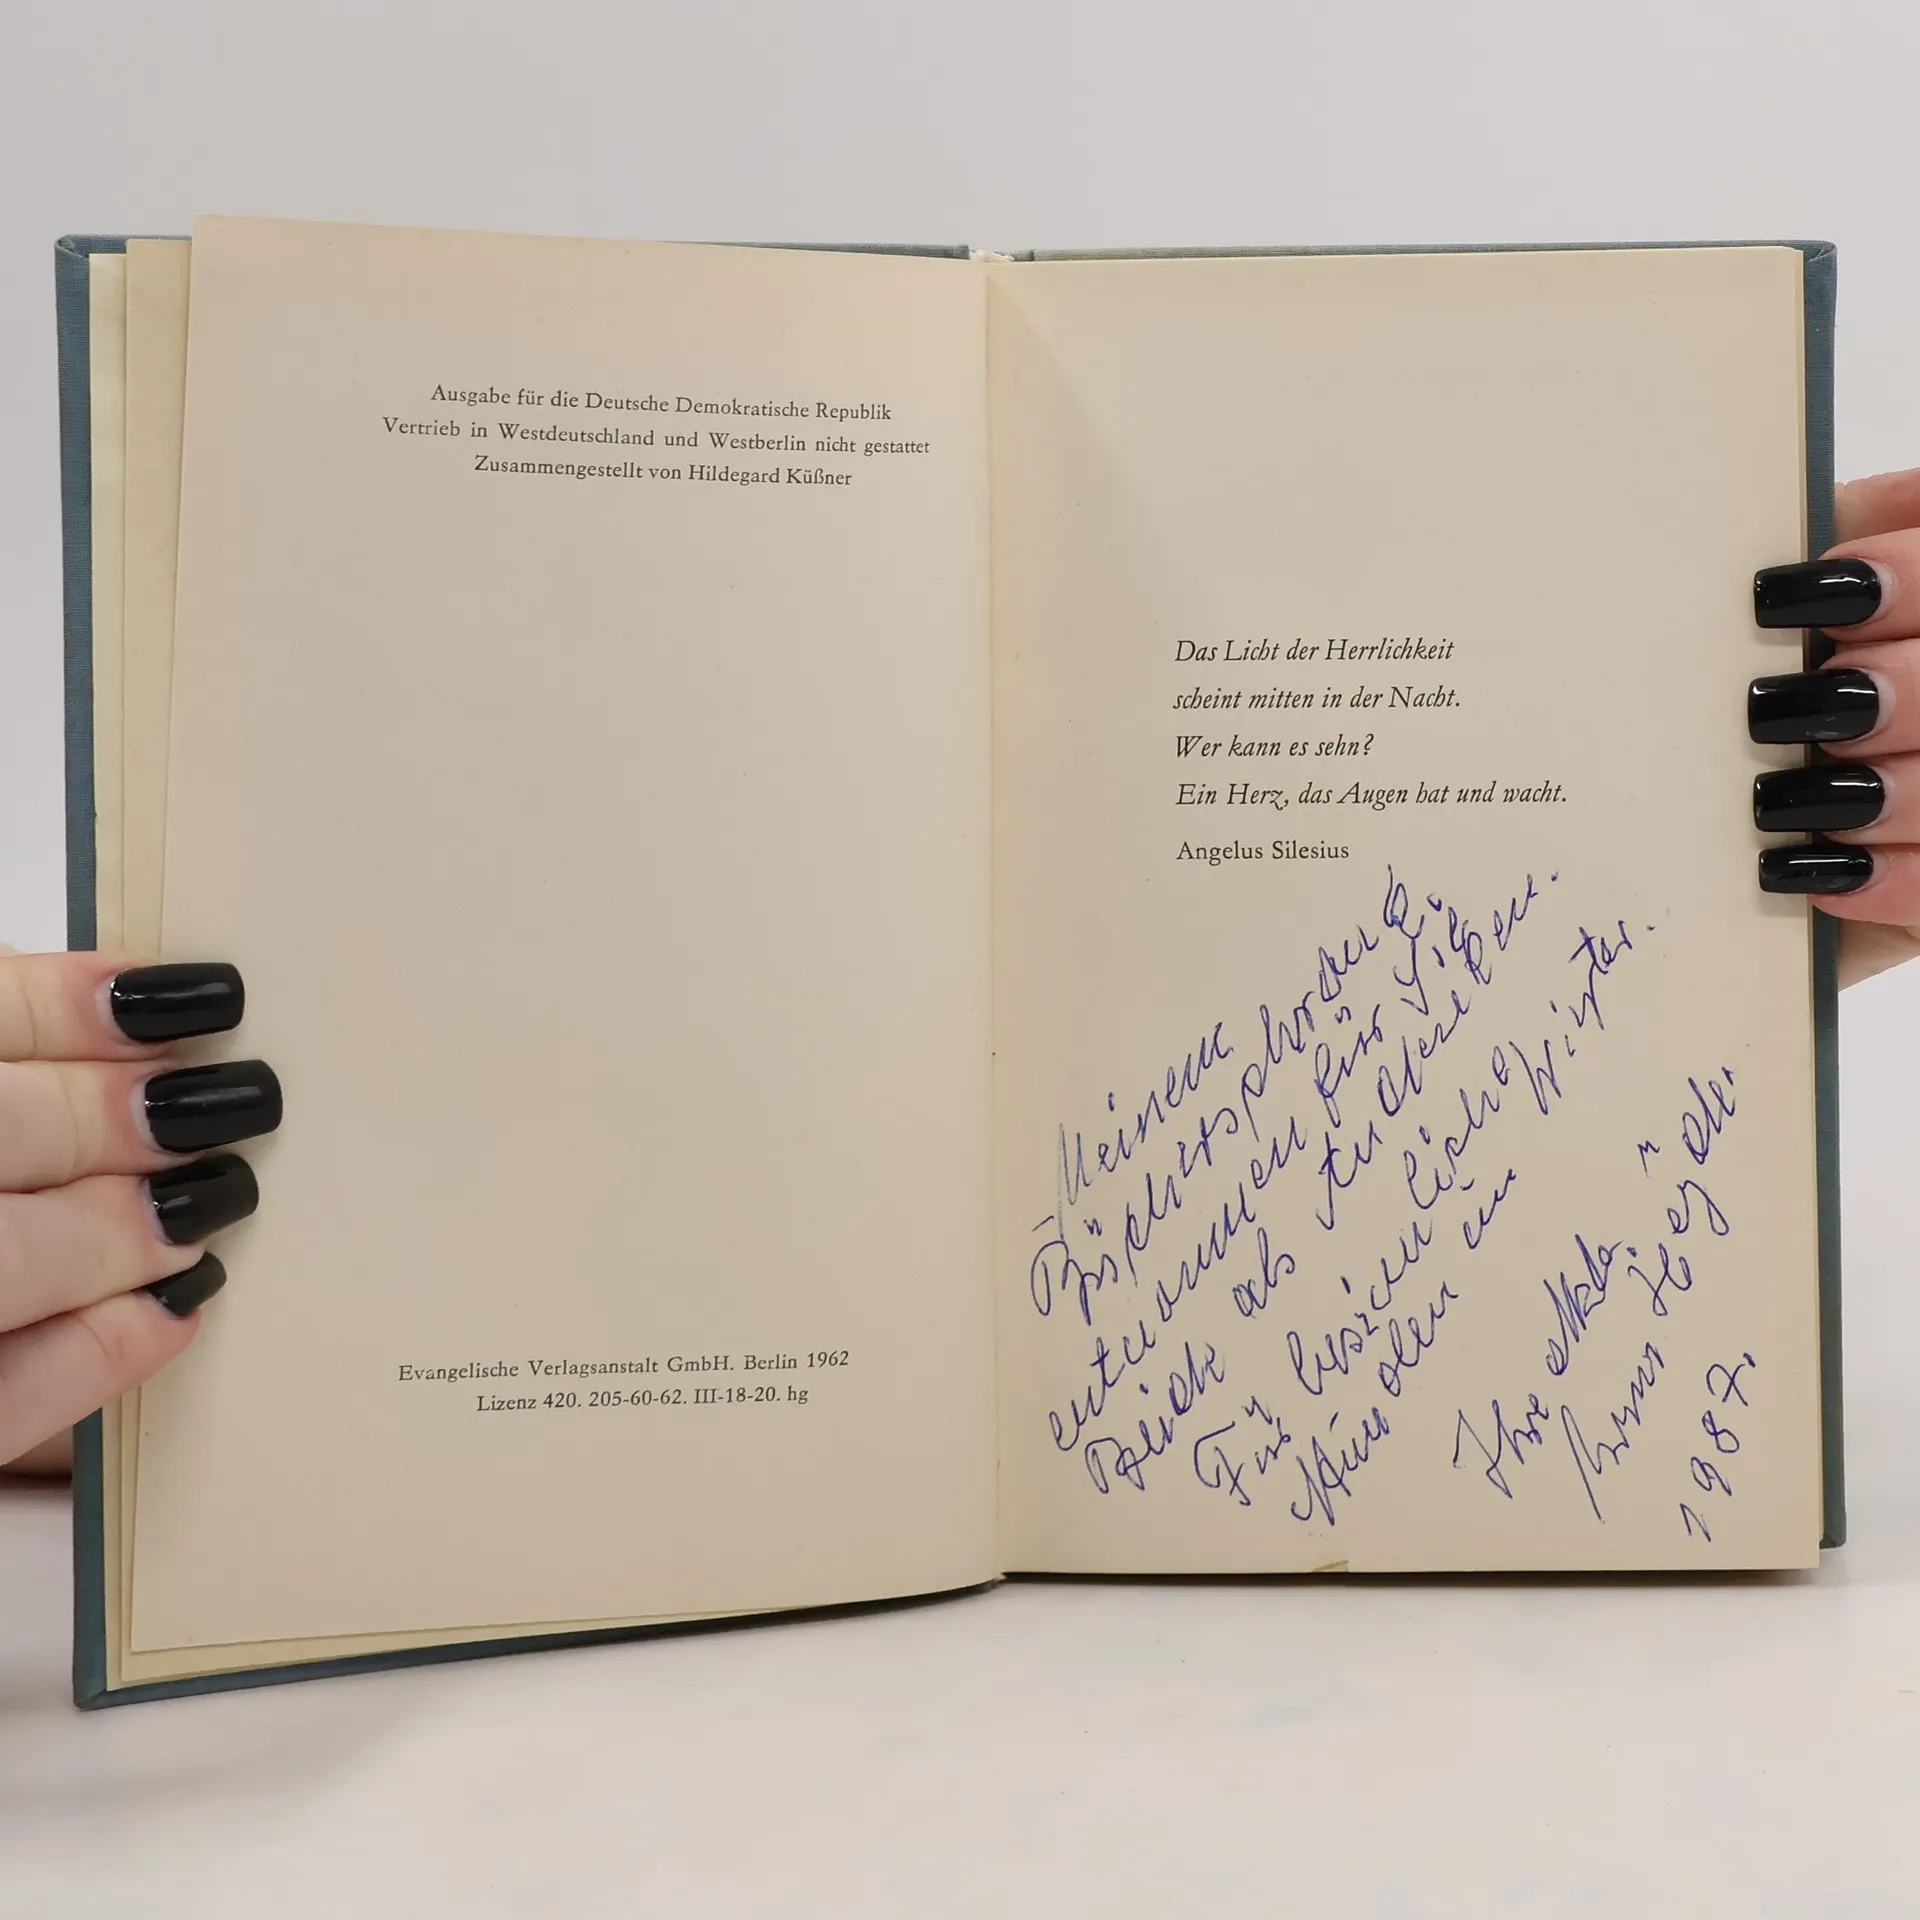 Ausgabe für die Deutsche Demokratische Republik
Vertrieb in Westdeutschland und Westberlin nicht gestattet
Zusammengestellt von Hildegard Küßner
Evangelische Verlagsanstalt GmbH. Berlin 1962
Lizenz 420. 205-60-62. III-18-20. hg
Das Licht der Herrlichkeit
scheint mitten in der Nacht.
Wer kann es sehn?
Ein Herz, das Augen hat und wacht.
Angelus Silesius
Meinem
Bücherschrank
entnommen für Sie
beide als Andenken.
Für besinnliche
Stunden im Winter.
Ihre
1987.